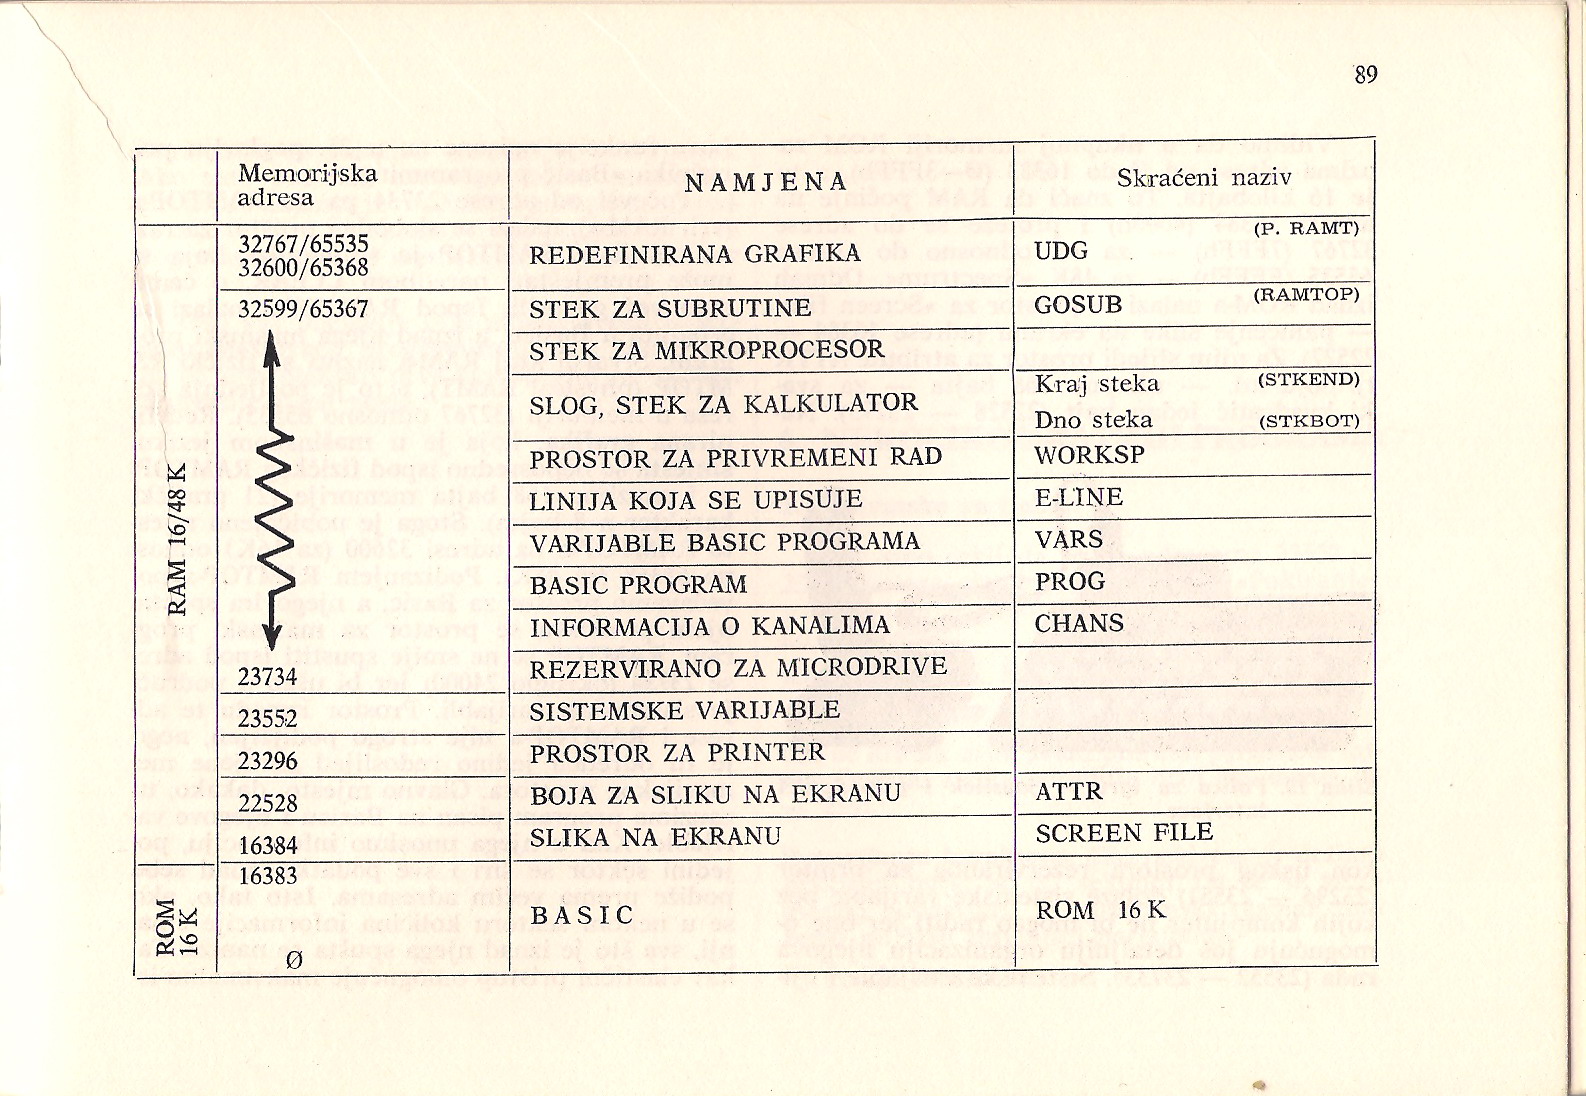 89
Memorijska
adresa
NAMJENA
Skraćeni naziv
RAM 16/48 K
32767/65535
32600/65368
REDEFINIRANA GRAFIKA
UDG
(P. RAMT)
32599/65367
STEK ZA SUBRUTINE
GOSUB
(RAMTOP)
STEK ZA MIKROPROCESOR
SLOG, STEK ZA KALKULATOR
Kraj steka (STKEND)
Dno steka (STKBOT)
PROSTOR ZA PRIVREMENI RAD
WORKSP
LINIJA KOJA SE UPISUJE
E-LINE
VARIJABLE BASIC PROGRAMA
VARS
BASIC PROGRAM
PROG
INFORMACIJA O KANALIMA
CHANS
23734
REZERVIRANO ZA MICRODRIVE
23552
SISTEMSKE VARIJABLE
23296
PROSTOR ZA PRINTER
22528
BOJA ZA SLIKU NA EKRANU
ATTR
16384
SLIKA NA EKRANU
SCREEN FILE
ROM
16 K
16383
Ø
BASIC
ROM 16 K